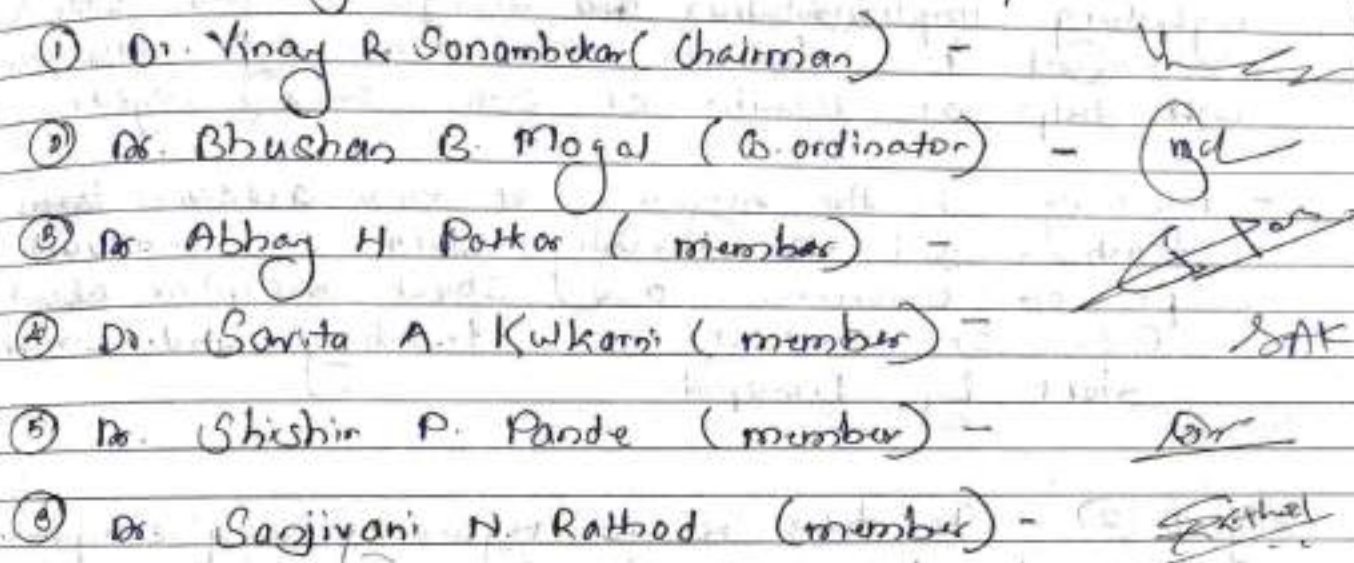 ① Dr. Vinay R Sonambekar (Chairman) -
② Dr. Bhushan B. Mogal (Co-ordinator) -
③ Dr. Abhay H Patkar (member) -
④ Dr. Sarita A. Kulkarni (member) - SAK
⑤ Dr. Shishir P. Pande (member) -
⑥ Dr. Sanjivani N. Rathod (member) -